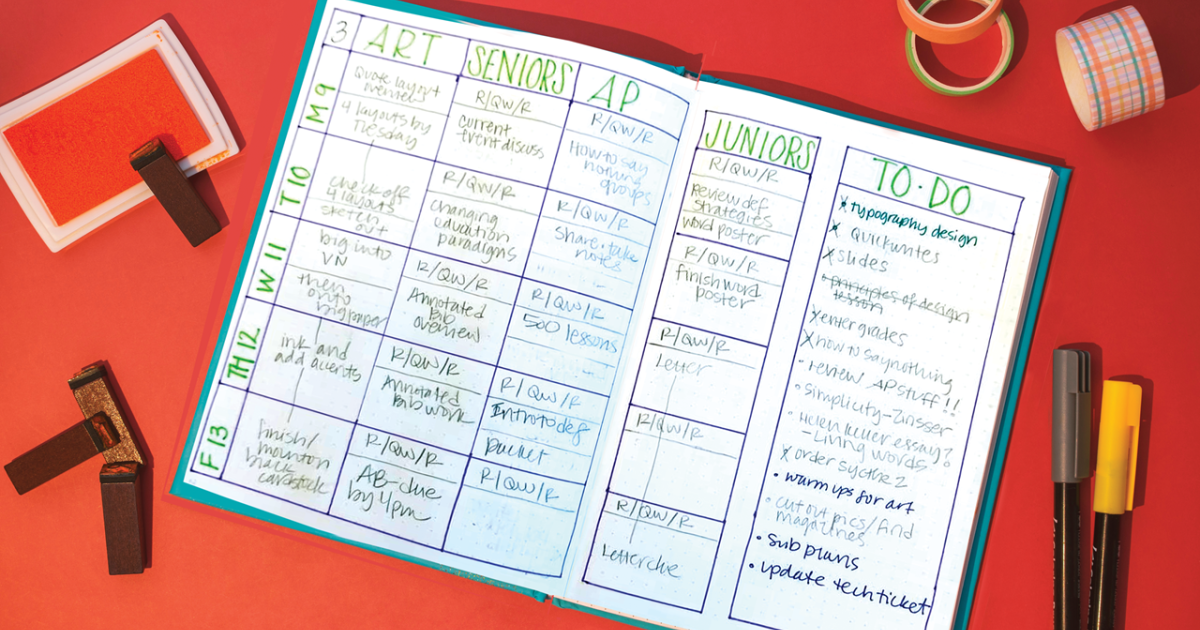 3
ART
SENIORS
AP
M 9
Quote layout
overview
4 layouts by
Tuesday
R/QW/R
current
event discuss
R/QW/R
How to say
nothing
groups
T 10
check off
4 layouts
sketch
out
R/QW/R
changing
education
paradigms
R/QW/R
Share · take
notes
W 11
big into
VN
then
onto
big paper
R/QW/R
Annotated
Bib
overview
R/QW/R
500 lessons
TH 12
ink and
add accents
R/QW/R
Annotated
Bib work
R/QW/R
Intro to def
packet
F 13
finish/
mount on
black
cardstock
R/QW/R
AB-due
by 4pm
R/QW/R
JUNIORS
R/QW/R
Review def.
strategies
word poster
R/QW/R
finish word
poster
R/QW/R
Letter
R/QW/R
R/QW/R
Letter due
TO·DO
x typography design
x Quickwrites
x slides
principles of design
lesson
x enter grades
x how to say nothing
· review AP stuff!!
· simplicity-Zinsser
· Helen Keller essay?
- Living words
x order sythe 2
· warm ups for art
· cut out pics/find
magazines
· sub plans
· update tech ticket